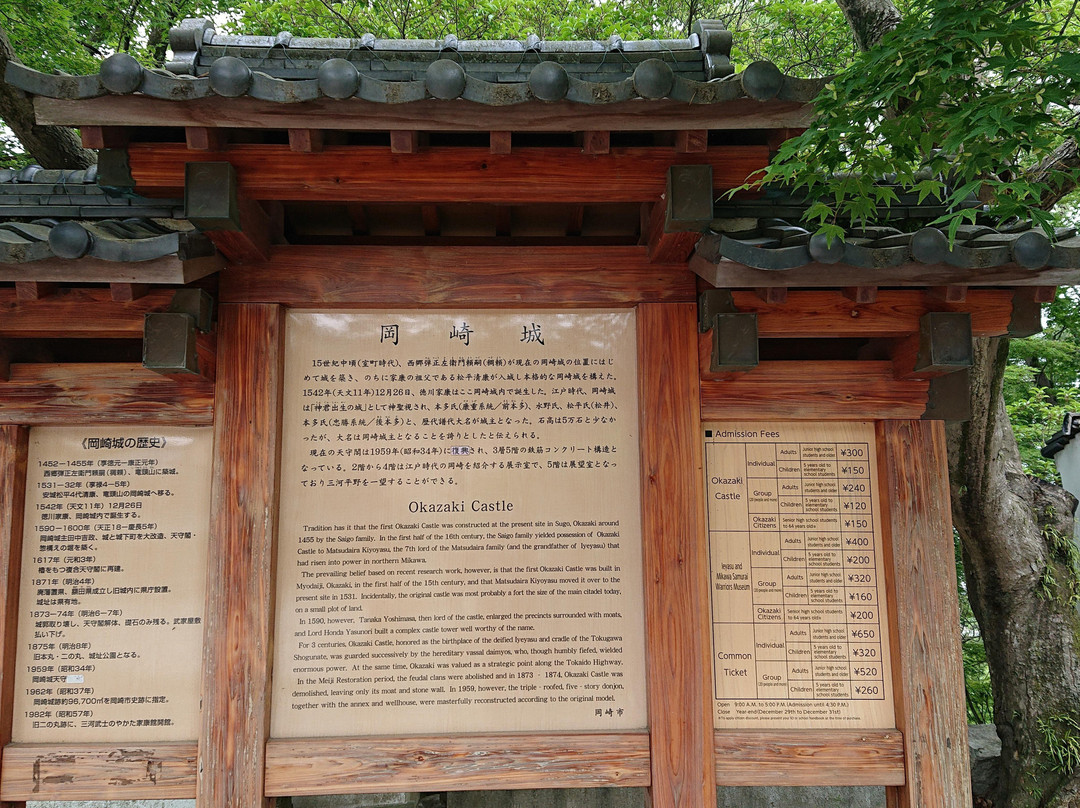 《岡崎城の歴史》
1452－1455年（享徳元－康正元年）
西郷弾正左衛門頼嗣（稠頼）、竜頭山に築城。
1531－32年（享禄4－5年）
安城松平4代清康、竜頭山の岡崎城へ移る。
1542年（天文11年）12月26日
徳川家康、岡崎城内で誕生する。
1590－1600年（天正18－慶長5年）
岡崎城主田中吉政、城と城下町を大改造、天守閣・
惣構えの堀を築く。
1617年（元和3年）
櫓をもつ複合天守閣に再建。
1871年（明治4年）
廃藩置県、額田県成立し旧城内に県庁設置。
城址は県有地。
1873－74年（明治6－7年）
城郭取り壊し、天守閣解体、礎石のみ残る。武家屋敷
払い下げ。
1875年（明治8年）
旧本丸・二の丸、城址公園となる。
1959年（昭和34年）
岡崎城天守
1962年（昭和37年）
岡崎城跡約96,700㎡を岡崎市史跡に指定。
1982年（昭和57年）
旧二の丸跡に、三河武士のやかた家康館開館。
岡崎城
15世紀中頃(室町時代)、西郷弾正左衛門頼嗣(稠頼)が現在の岡崎城の位置にはじ
めて城を築き、のちに家康の祖父である松平清康が入城し本格的な岡崎城を構えた。
1542年(天文11年)12月26日、徳川家康はここ岡崎城内で誕生した。江戸時代、岡崎城
は「神君出生の城」として神聖視され、本多氏(康重系統／前本多)、水野氏、松平氏(松井)、
本多氏(忠勝系統／後本多)と、歴代譜代大名が城主となった。石高は5万石と少なか
ったが、大名は岡崎城主となることを誇りとしたと伝えられる。
現在の天守閣は1959年(昭和34年)に復興され、3層5階の鉄筋コンクリート構造と
なっている。2階から4階は江戸時代の岡崎を紹介する展示室で、5階は展望室となっ
ており三河平野を一望することができる。
Okazaki Castle
Tradition has it that the first Okazaki Castle was constructed at the present site in Sugo, Okazaki around
1455 by the Saigo family. In the first half of the 16th century, the Saigo family yielded possession of Okazaki
Castle to Matsudaira Kiyoyasu, the 7th lord of the Matsudaira family (and the grandfather of Iyeyasu) that
had risen into power in northern Mikawa.
The prevailing belief based on recent research work, however, is that the first Okazaki Castle was built in
Myodaiji, Okazaki, in the first half of the 15th century, and that Matsudaira Kiyoyasu moved it over to the
present site in 1531. Incidentally, the original castle was most probably a fort the size of the main citadel today,
on a small plot of land.
In 1590, however, Tanaka Yoshimasa, then lord of the castle, enlarged the precincts surrounded with moats,
and Lord Honda Yasunori built a complex castle tower well worthy of the name.
For 3 centuries, Okazaki Castle, honored as the birthplace of the deified Iyeyasu and cradle of the Tokugawa
Shogunate, was guarded successively by the hereditary vassal daimyos, who, though humbly fiefed, wielded
enormous power. At the same time, Okazaki was valued as a strategic point along the Tokaido Highway.
In the Meiji Restoration period, the feudal clans were abolished and in 1873 - 1874, Okazaki Castle was
demolished, leaving only its moat and stone wall. In 1959, however, the triple - roofed, five - story donjon,
together with the annex and wellhouse, were masterfully reconstructed according to the original model.
岡崎市
■ Admission Fees
Okazaki Castle
Individual Adults Junior high school students and older ¥300
Children 5 years old to elementary school students ¥150
Group (30 people and more) Adults Junior high school students and older ¥240
Children 5 years old to elementary school students ¥120
Okazaki Citizens Senior high school students to 64 years olds ¥150
Ieyasu and Mikawa Samurai Warriors Museum
Individual Adults Junior high school students and older ¥400
Children 5 years old to elementary school students ¥200
Group (30 people and more) Adults Junior high school students and older ¥320
Children 5 years old to elementary school students ¥160
Okazaki Citizens Senior high school students to 64 years olds ¥200
Common Ticket
Individual Adults Junior high school students and older ¥650
Children 5 years old to elementary school students ¥320
Group (30 people and more) Adults Junior high school students and older ¥520
Children 5 years old to elementary school students ¥260
Open 9:00 A.M. to 5:00 P.M. (Admission until 4:30 P.M.)
Close Year-end (December 29th to December 31st)